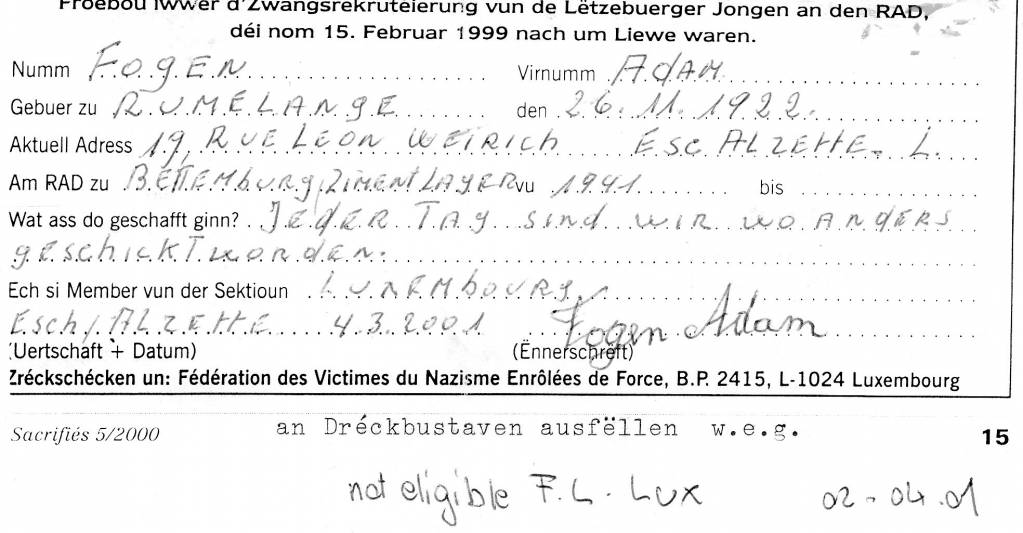 Froebou iwwer d'Zwangsrekrutéierung vun de Lëtzebuerger Jongen an den RAD,
déi nom 15. Februar 1999 nach um Liewe waren.
Numm FOGEN Virnumm ADAM
Gebuer zu RUMELANGE den 26.11.1922.
Aktuell Adress 19, RUE LEON WEIRICH ESC ALZETTE. L.
Am RAD zu BETTEMBURG, ZIMENTLAGER vu 1941 bis
Wat ass do geschafft ginn? JEDER TAG sind WIR WO ANDERS
gESchICKT worden.
Ech si Member vun der Sektioun LUXEMbOURg
Esch/ALZETTE 4.3.2001 Fogen Adam
(Uertschaft + Datum) (Ënnerschrëft)
Zréckschécken un: Fédération des Victimes du Nazisme Enrôlées de Force, B.P. 2415, L-1024 Luxembourg
Sacrifiés 5/2000 an Dréckbustaven ausfëllen w.e.g. 15
not eligible F.L. Lux 02-04.01